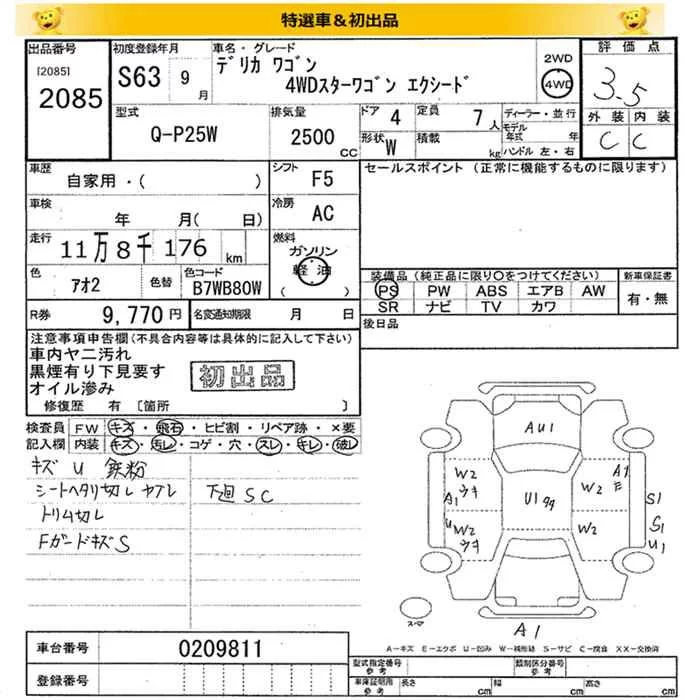 特選車＆初出品
出品番号
[2085]
2085
初度登録年月
S63 9月
車名・グレード
デリカ ワゴン
4WDスターワゴン エクシード
2WD
4WD
評価点
3.5
外装 内装
C C
型式
Q-P25W
排気量
2500 CC
ドア 4
定員 7人
形状 W
積載 kg
ディーラー・並行
モデル年式 年
ハンドル 左・右
車歴
自家用・( )
シフト F5
車検
年 月( 日)
冷房 AC
走行
11万8千176km
燃料
ガソリン
軽油
( )
色 アオ2
色替
色コード B7WB80W
R券 9,770円
名変通知期限 月 日
セールスポイント (正常に機能するものに限ります)
装備品 (純正品に限り○をつけてください)
新車保証書
PS PW ABS エアB AW
SR ナビ TV カワ
有・無
後日品
注意事項申告欄(不具合内容等は具体的に記入して下さい)
車内ヤニ汚れ
黒煙有り下見要す
オイル滲み
初出品
修復歴 有 [箇所 ]
検査員 FW キズ・飛石・ヒビ割・リペア跡・×要
記入欄 内装 キズ・汚レ・コゲ・穴・スレ・キレ・破レ
キズ U 鉄粉
シートヘタリ切レ ヤブレ
下廻SC
トリム切レ
FガードキズS
AU1
W2
ウキ
A1
U
W2
ウキ
U1
W2
A1
W2
S1
S1
U1
スマ
A1
A－キズ E－エクボ U－凹み W－補修跡 S－サビ C－腐食 XX－交換済
車台番号 0209811
登録番号
型式指定番号 参考
類別区分番号 参考
車庫証明用 参考
長さ cm 幅 cm 高さ cm